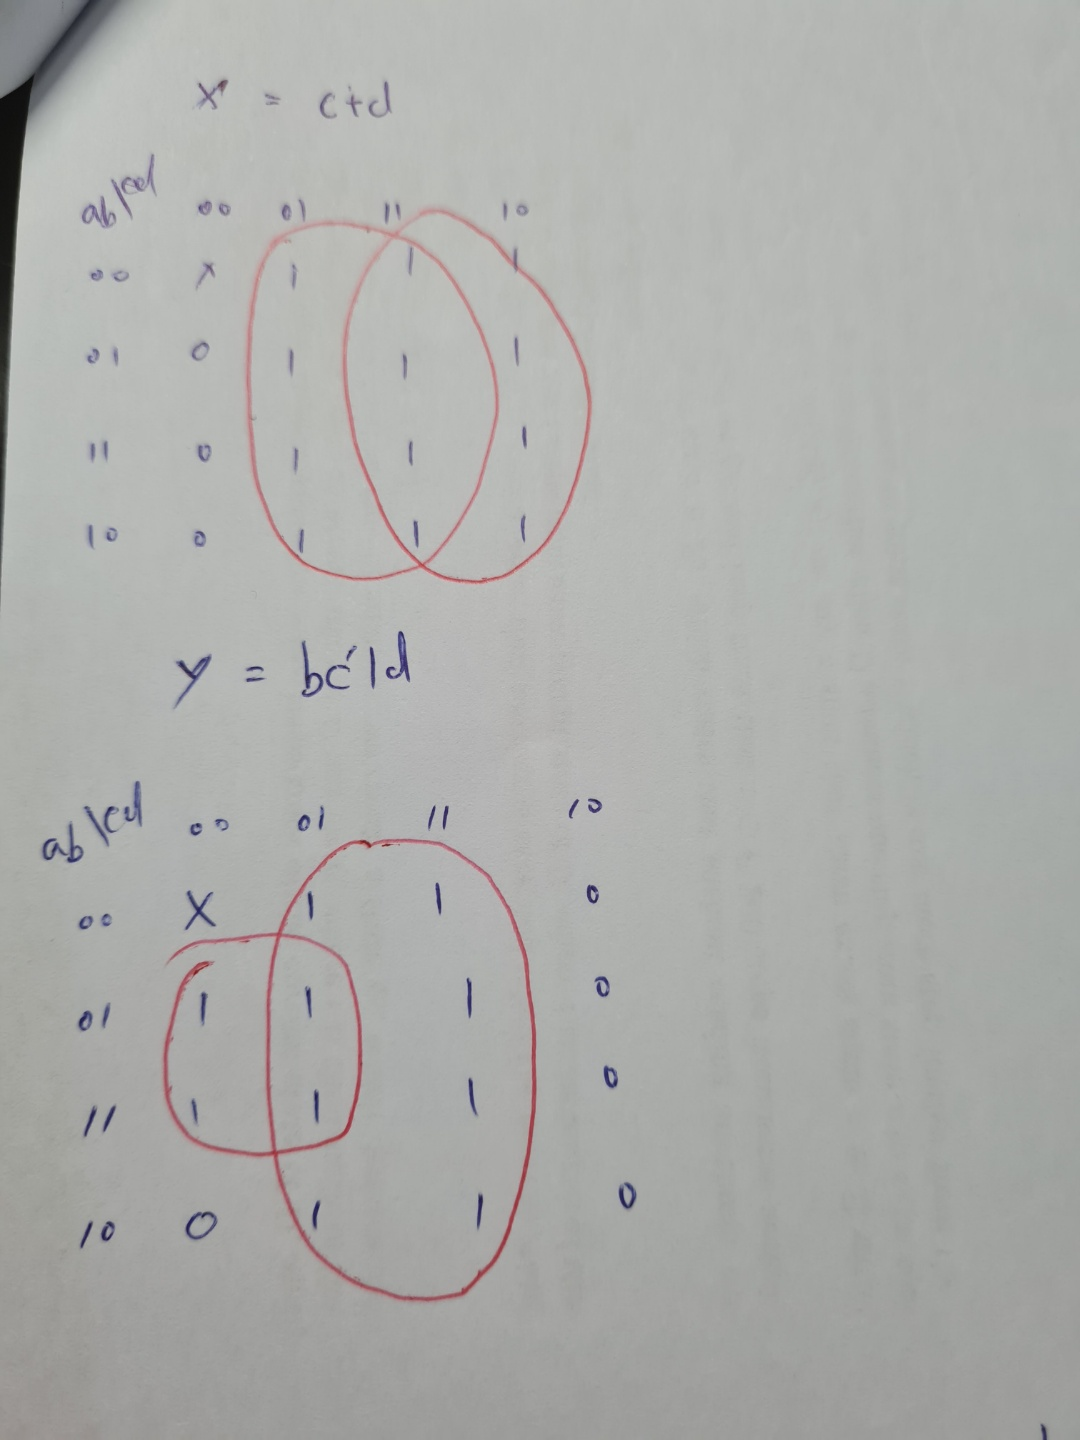 x = c+d
ab\cd 00 01 11 10
00 X 1 1 1
01 0 1 1 1
11 0 1 1 1
10 0 1 1 1
y = bc'1d
ab\cd 00 01 11 10
00 X 1 1 0
01 1 1 1 0
11 1 1 1 0
10 0 1 1 0